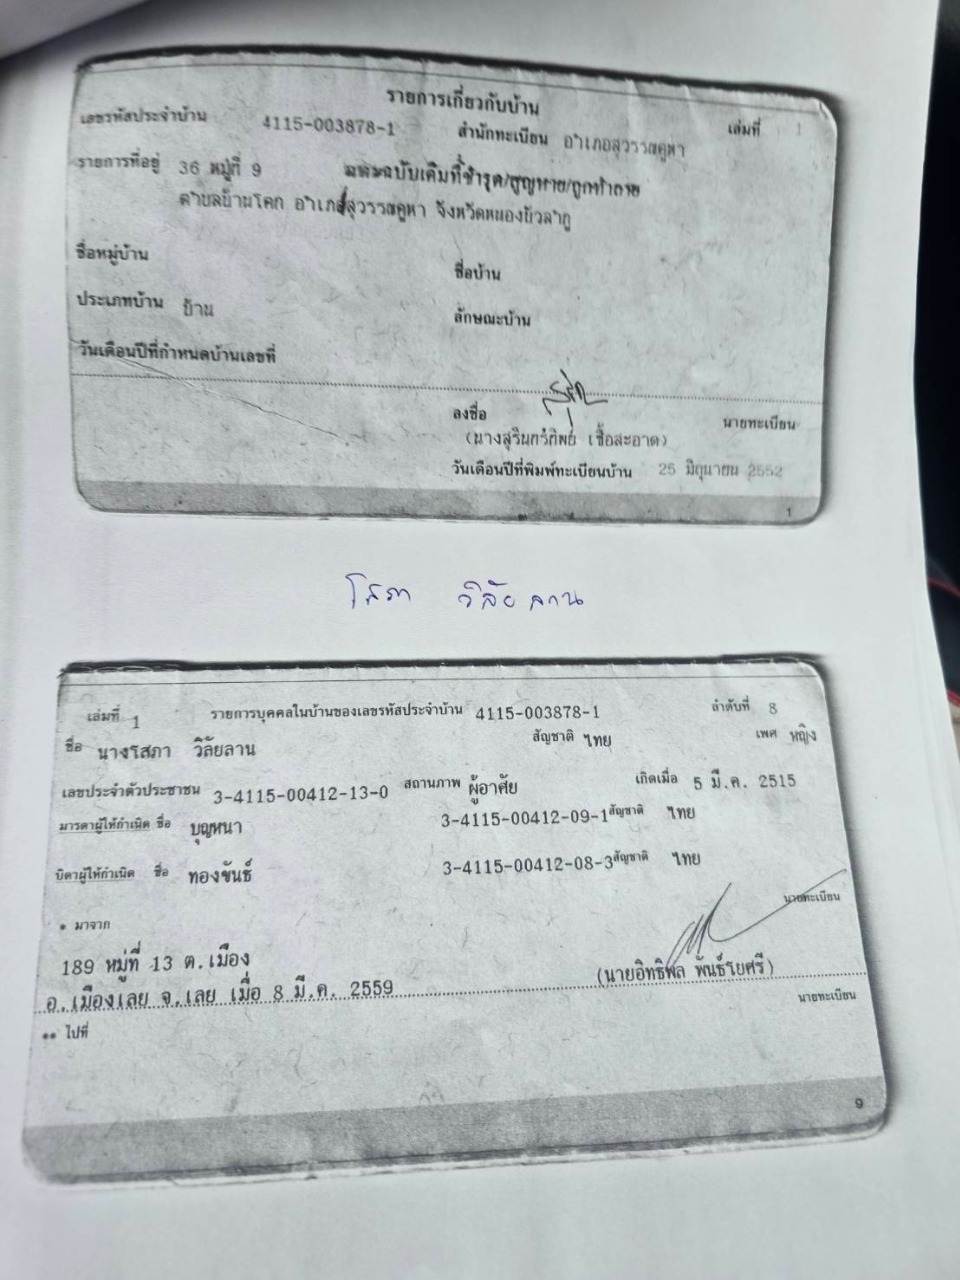 รายการเกี่ยวกับบ้าน เล่มที่ 1
เลขรหัสประจำบ้าน 4115-003878-1 สำนักทะเบียน อำเภอสุวรรณคูหา
รายการที่อยู่ 36 หมู่ที่ 9 แทนฉบับเดิมที่ชำรุด/สูญหาย/ถูกทำลาย
ตำบลบ้านโคก อำเภอสุวรรณคูหา จังหวัดหนองบัวลำภู
ชื่อหมู่บ้าน ชื่อบ้าน
ประเภทบ้าน บ้าน ลักษณะบ้าน
วันเดือนปีที่กำหนดบ้านเลขที่
ลงชื่อ นายทะเบียน
(นางสุรินทร์ทิพย์ เชื้อสะอาด)
วันเดือนปีที่พิมพ์ทะเบียนบ้าน 25 มิถุนายน 2552
1
โสภา วิลัยลาน
เล่มที่ 1 รายการบุคคลในบ้านของเลขรหัสประจำบ้าน 4115-003878-1 ลำดับที่ 8
ชื่อ นางโสภา วิลัยลาน สัญชาติ ไทย เพศ หญิง
เลขประจำตัวประชาชน 3-4115-00412-13-0 สถานภาพ ผู้อาศัย เกิดเมื่อ 5 มี.ค. 2515
มารดาผู้ให้กำเนิด ชื่อ บุญหนา 3-4115-00412-09-1 สัญชาติ ไทย
บิดาผู้ให้กำเนิด ชื่อ ทองขันธ์ 3-4115-00412-08-3 สัญชาติ ไทย
* มาจาก นายทะเบียน
189 หมู่ที่ 13 ต.เมือง
อ.เมืองเลย จ.เลย เมื่อ 8 มี.ค. 2559 (นายอิทธิพล พันธ์รยศรี)
นายทะเบียน
** ไปที่
9